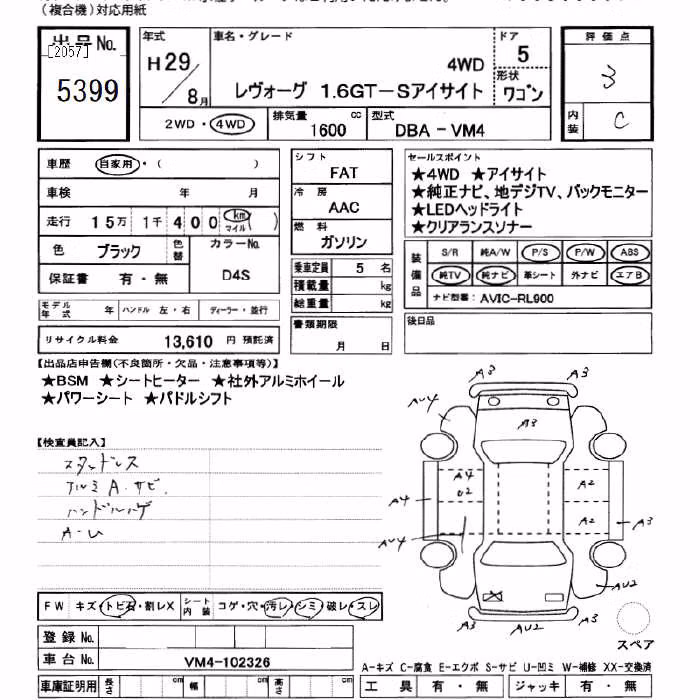 （複合機）対応用紙
出品No.
[2057]
5399
年式
H29/8月
車名・グレード
4WD
レヴォーグ 1.6GT－Sアイサイト
ドア
5
形状
ワゴン
評価点
3
内装
C
2WD・4WD
排気量
1600 cc
型式
DBA－VM4
車歴 自家用・（ ）
車検 年 月
走行 15万 1千 400 km マイル（ ）
色 ブラック
色替
カラーNo.
D4S
保証書 有・無
シフト
FAT
冷房
AAC
燃料
ガソリン
乗車定員 5 名
積載量 kg
総重量 kg
書類期限
月 日
セールスポイント
★4WD ★アイサイト
★純正ナビ、地デジTV、バックモニター
★LEDヘッドライト
★クリアランスソナー
装備品
S/R 純A/W P/S P/W ABS
純TV 純ナビ 革シート 外ナビ エアB
ナビ型番： AVIC－RL900
後日品
モデル年式 年 ハンドル 左・右 ディーラー・並行
リサイクル料金 13,610 円 預託済
【出品店申告欄(不良箇所・欠品・注意事項等)】
★BSM ★シートヒーター ★社外アルミホイール
★パワーシート ★パドルシフト
【検査員記入】
スタッドレス
アルミ A. サビ.
ハンドルハゲ
A-U
A3 A3
AU4
A3
A4
U2
A2
A4
A2
A3
AU4
AU2
A3 AU2 A3
スペア
FW キズ・トビ石・割レX
シート内装 コゲ・穴・汚レ・シミ・破レ・スレ
登録No.
車台No. VM4-102326
車庫証明用 長さ cm 幅 cm 高さ cm
A－キズ C－腐食 E－エクボ S－サビ U－凹ミ W－補修 XX－交換済
工具 有・無 ジャッキ 有・無